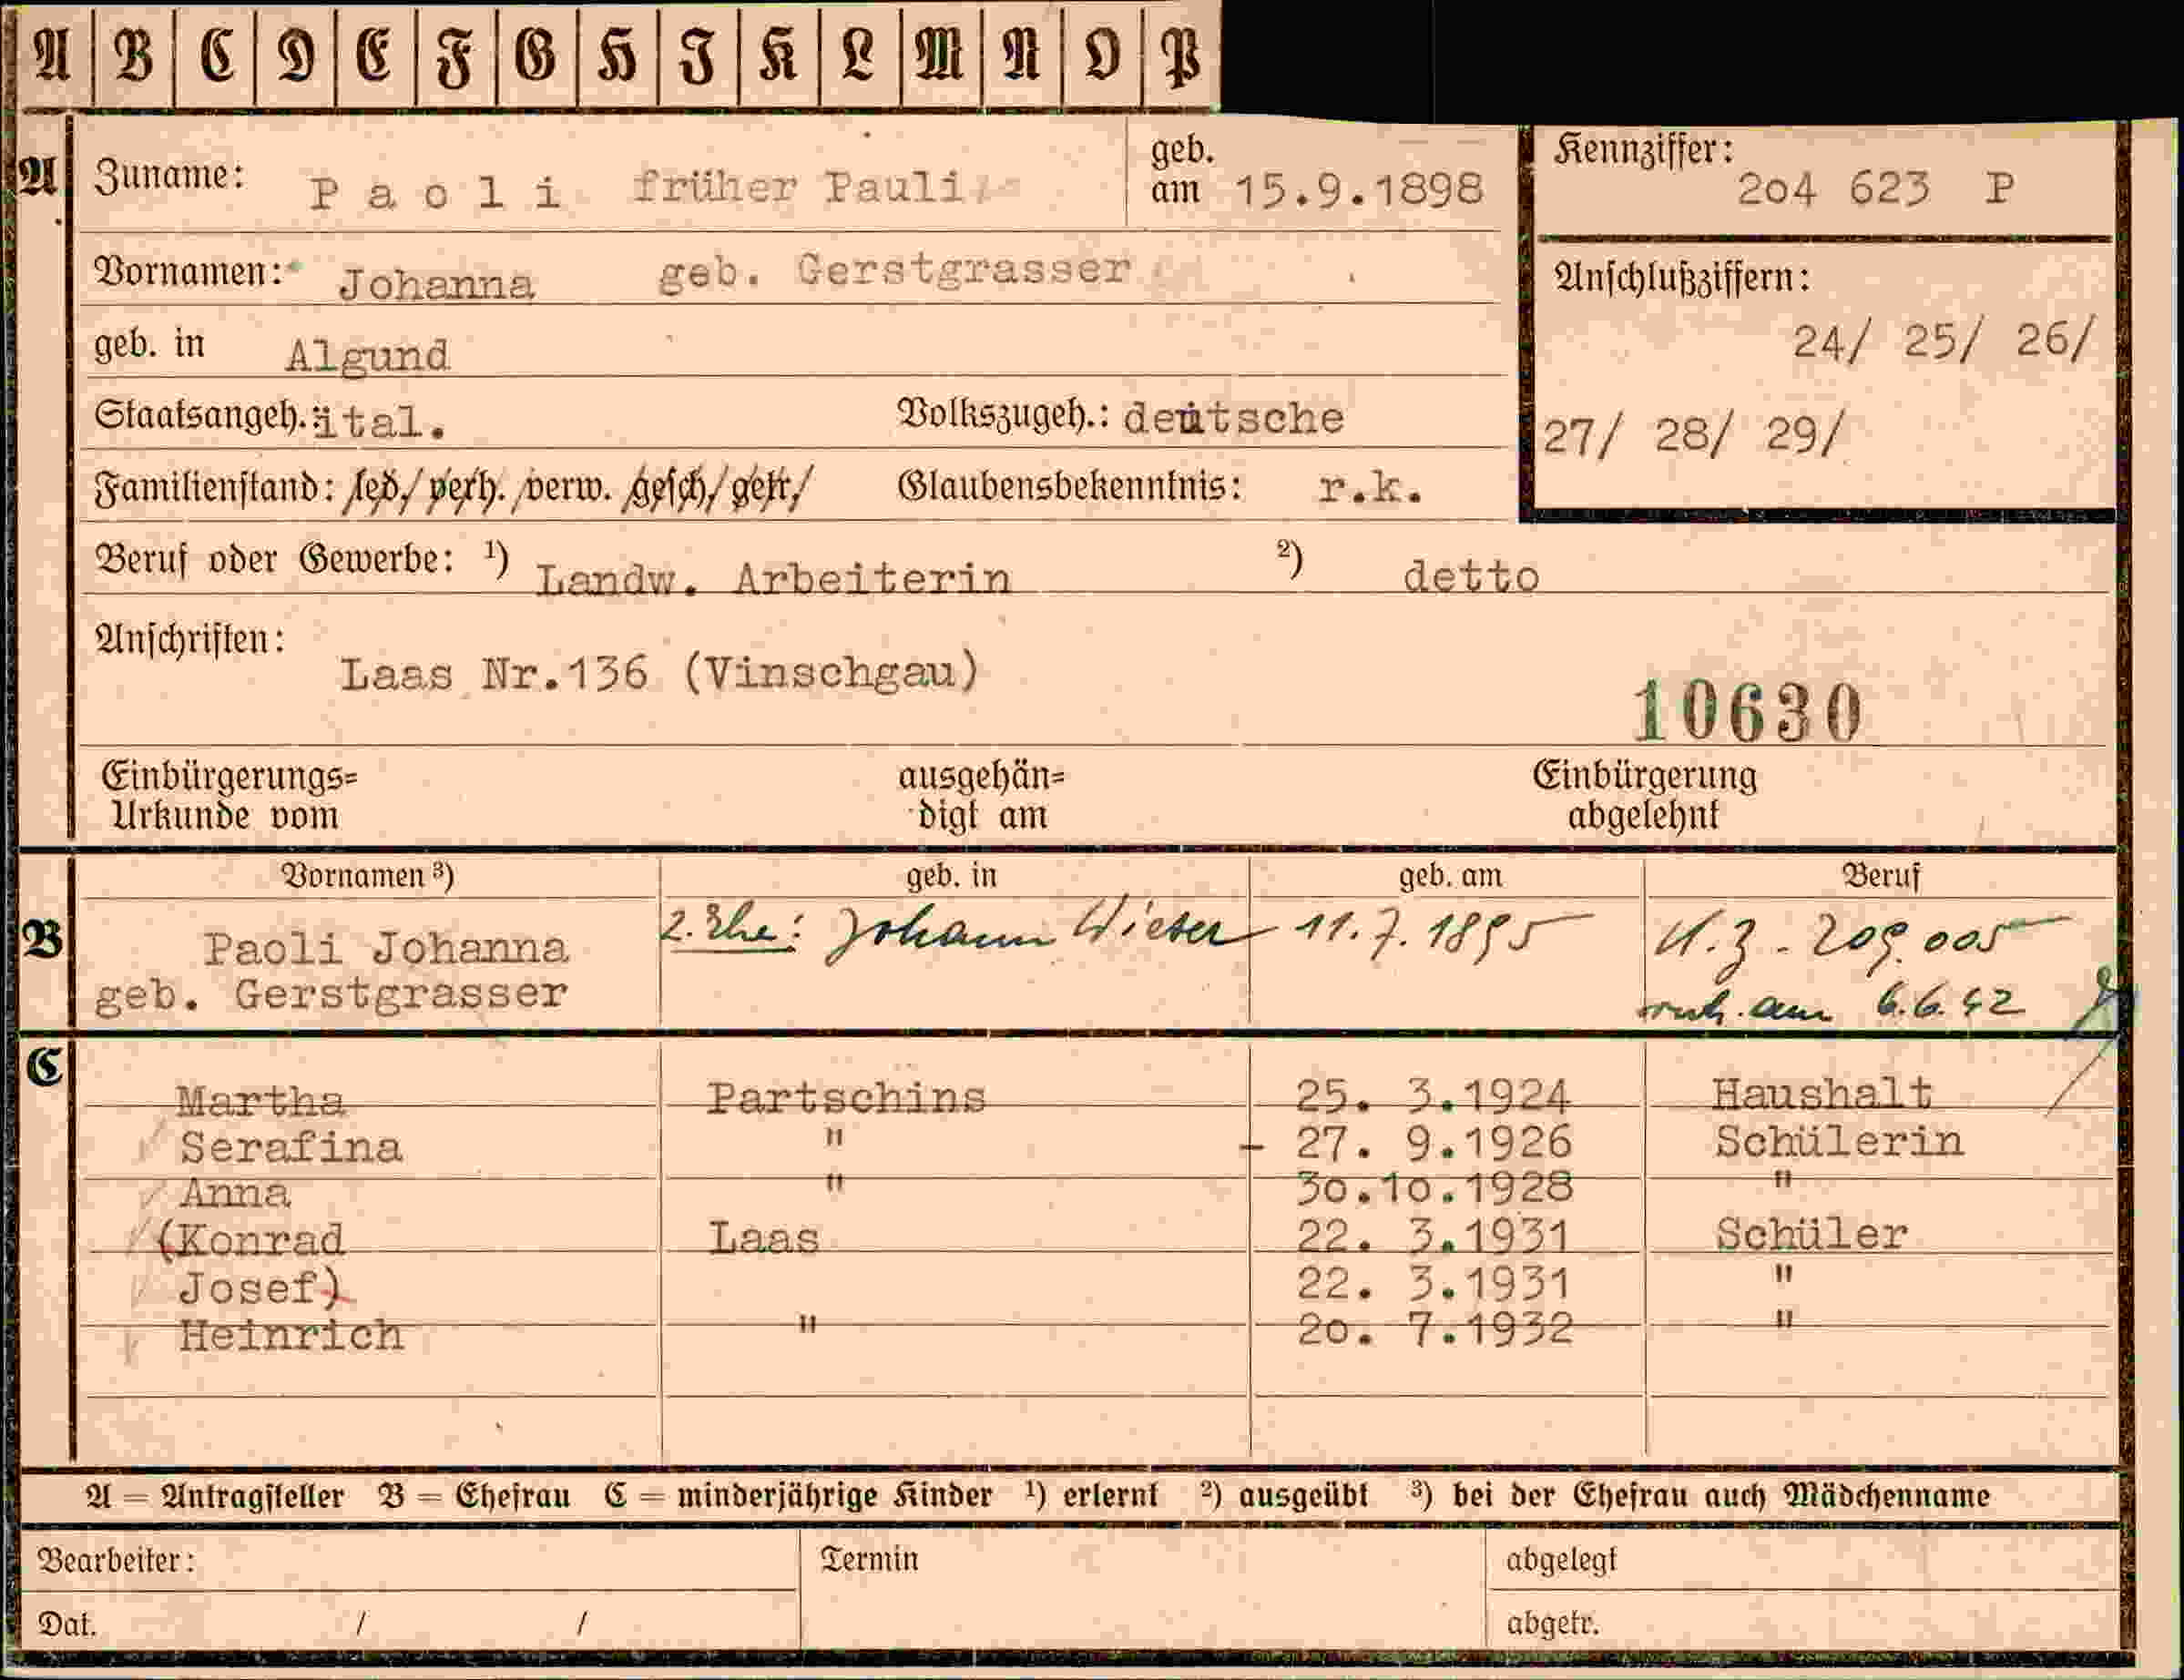 A B C D E F G H I K L M N O P
A Zuname: Paoli früher Pauli geb. am 15.9.1898
Kennziffer: 2o4 623 P
Vornamen: Johanna geb. Gerstgrasser
Anschlußziffern:
24/ 25/ 26/
27/ 28/ 29/
geb. in Algund
Staatsangeh.: ital. Volkszugeh.: deutsche
Familienstand: led./verh./verw. gesch./getr./ Glaubensbekenntnis: r.k.
Beruf oder Gewerbe: 1) Landw. Arbeiterin 2) detto
Anschriften:
Laas Nr.136 (Vinschgau)
10630
Einbürgerungs= ausgehän= Einbürgerung
Urkunde vom digt am abgelehnt
Vornamen 3) geb. in geb. am Beruf
B Paoli Johanna 2. Ehe: Johann Wieser 11.7.1895 K.Z. - 209.005
geb. Gerstgrasser am 6.6.42
C
Martha Partschins 25. 3.1924 Haushalt
Serafina " - 27. 9.1926 Schülerin
Anna " 3o.1o.1928 "
(Konrad Laas 22. 3.1931 Schüler
Josef) 22. 3.1931 "
Heinrich " 2o. 7.1932 "
A = Antragsteller B = Ehefrau C = minderjährige Kinder 1) erlernt 2) ausgeübt 3) bei der Ehefrau auch Mädchenname
Bearbeiter: Termin abgelegt
Dat. / / abgetr.